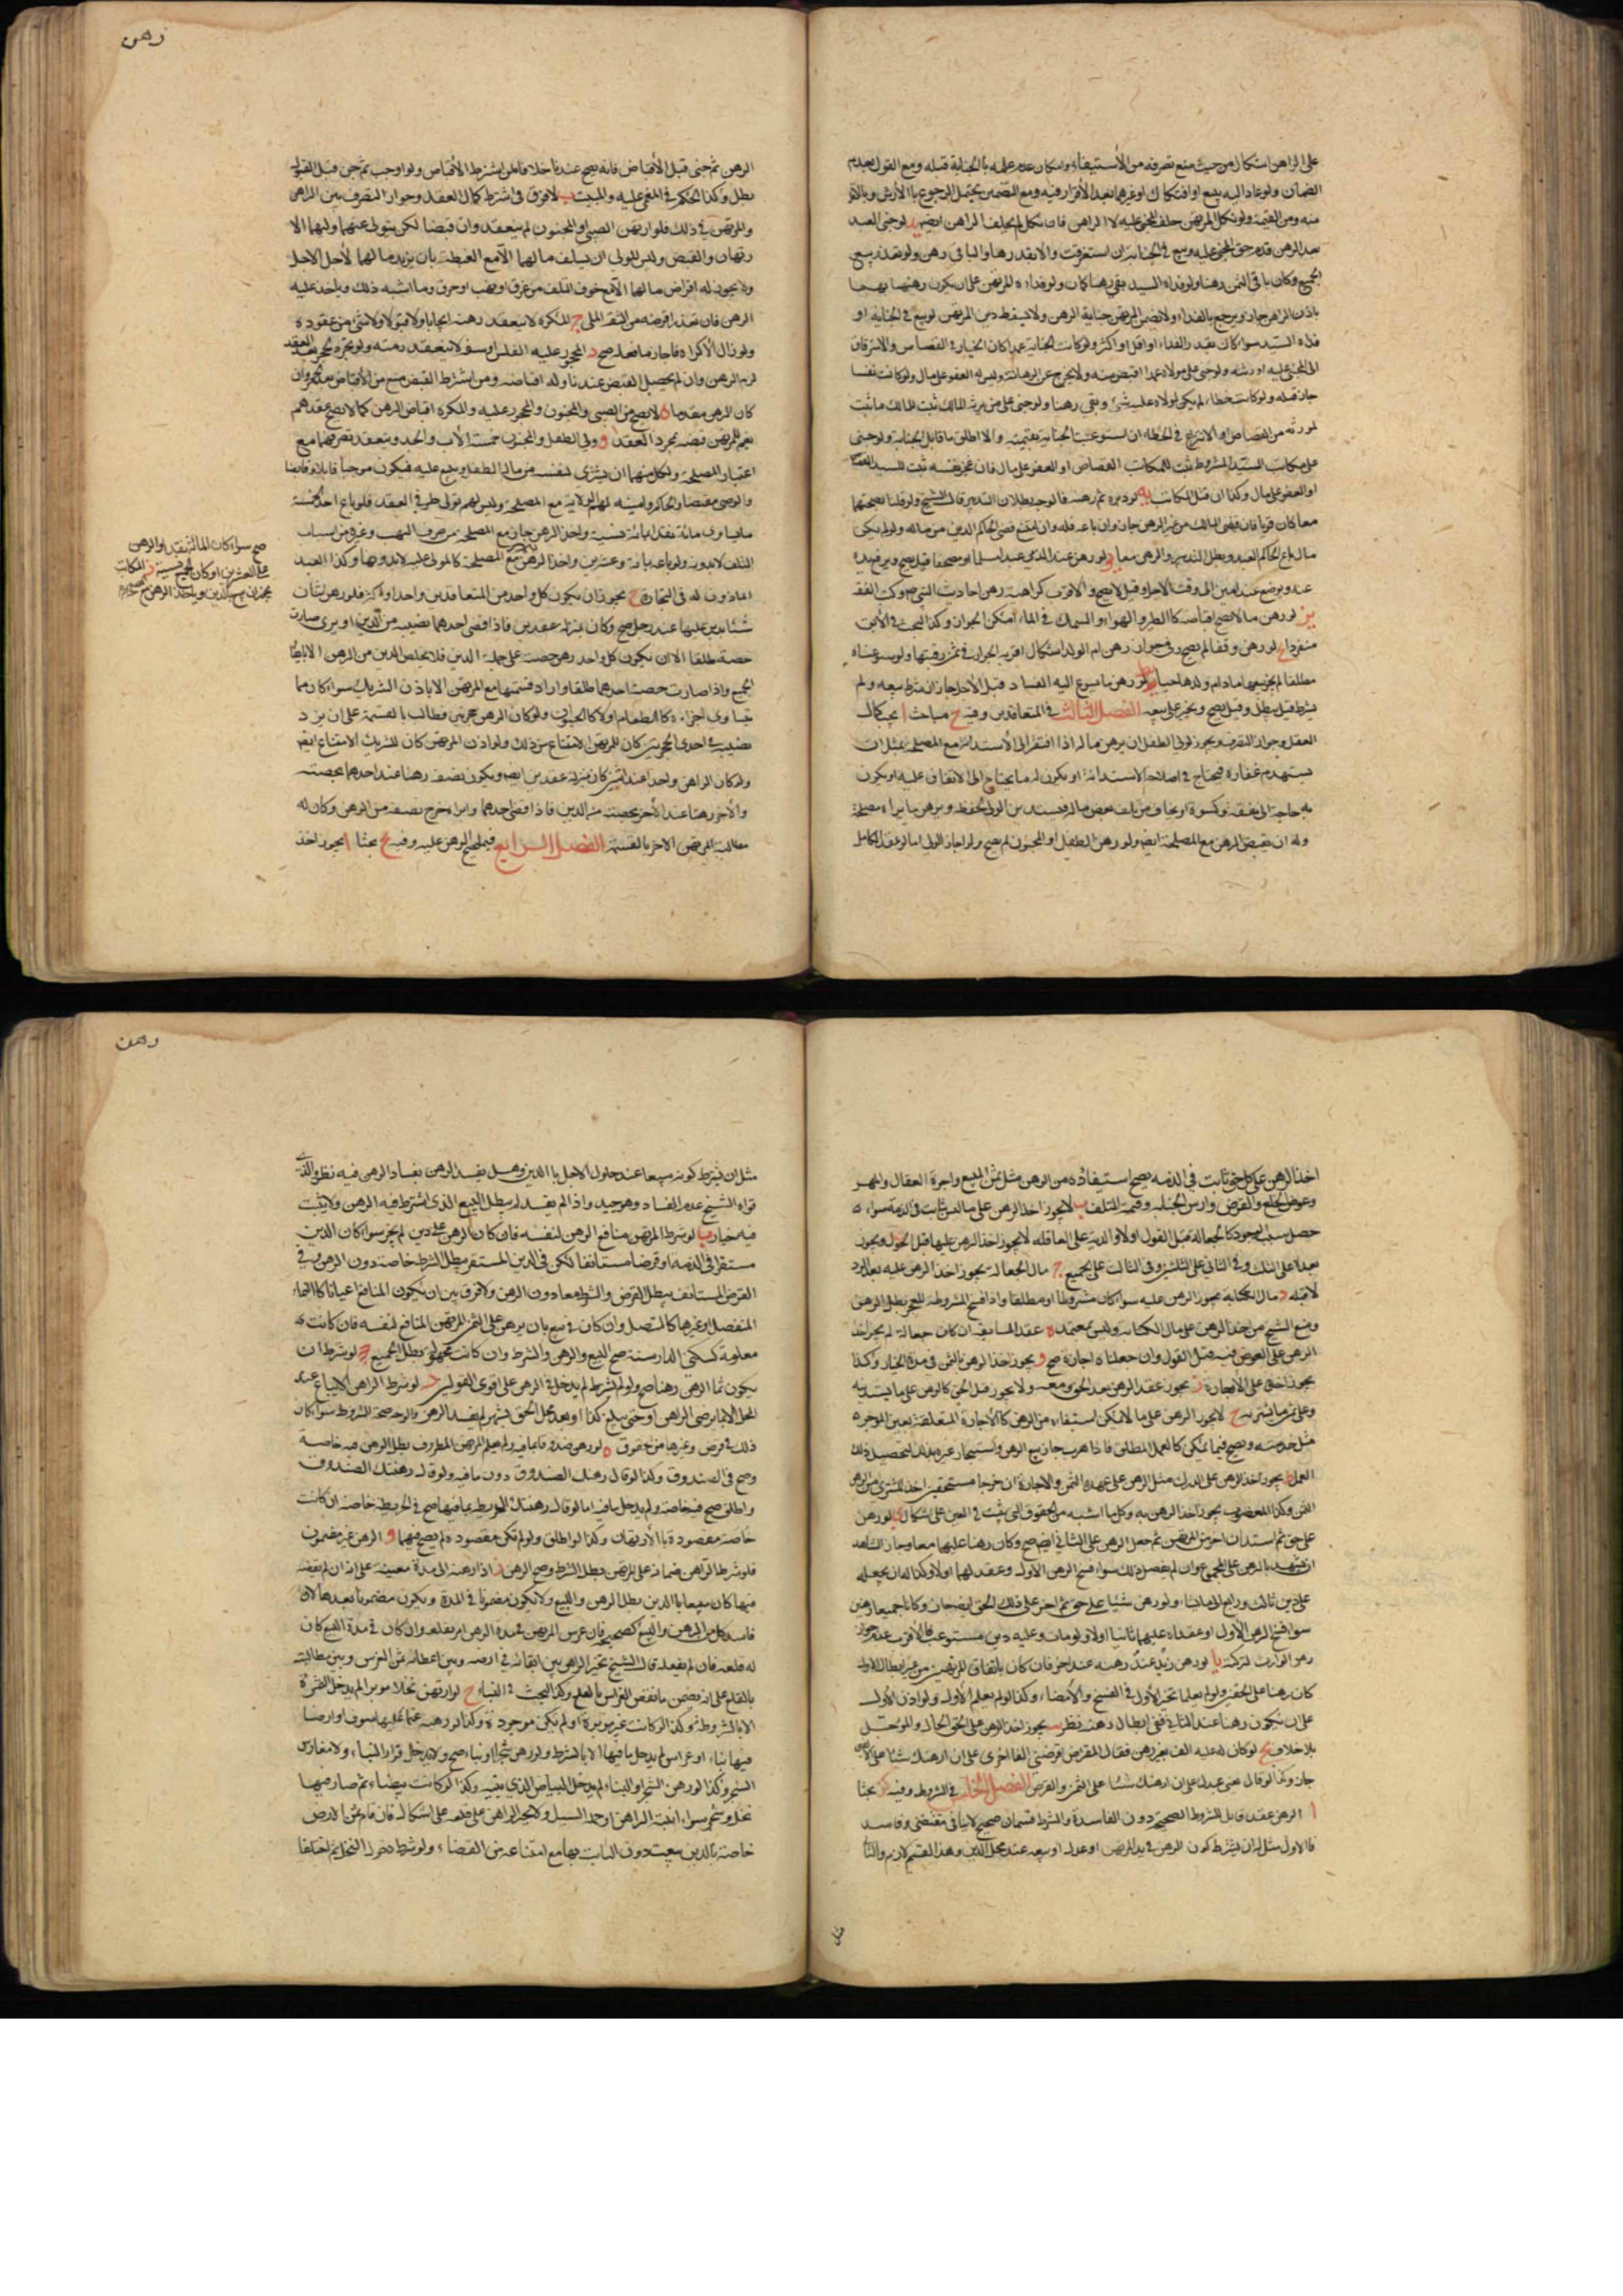 على الراهن اشكال من حيث منع تصرفه من الاستيفاء وامكان علمه بالجناية قبله ومع القول بعدم
الضمان ولو عاد اليه ببيع او افتكاك او غيرهما بعد الاقرار فيه ومع التضمين يحتمل الرجوع بالارش
منه ومن القيمة ولو نكل المرتهن حلف المجنى عليه لا الراهن فان نكل لم يحلف الراهن ايضا يد لو جنى العبد
بعد الرهن قدم حق المجنى عليه وبيع في الجناية ان استغرقت والا بقدرها والباقي رهن ولو تعذر بيع
الجميع وكان باقي الثمن رهنا ولو فداه السيد بقى رهنا كما كان ولو فداه المرتهن على ان يكون رهنا بهما
باذن الراهن جاز ويرجع بالفداء ولا يضمن المرتهن جناية الرهن ولا يسقط دين المرتهن لو بيع في الجناية او
فداه السيد سواء كان بقدر الفداء او اقل او اكثر ولو كانت الجناية عمدا كان الخيار في القصاص والاسترقاق
الى المجنى عليه او ورثته ولو جنى على مولاه عمدا اقتص منه ولا يخرج عن الرهانة وليس له العفو على مال ولو كانت نفسا
جاز قتله ولو كانت خطاء لم يكن لمولاه عليه شئ وبقي رهنا ولو جنى على من يرثه المالك ثبت للمالك ما ثبت
لمورثه من القصاص او الانتزاع في الخطاء ان استوعبت الجناية بقيمته والا اطلق ما قابل الجناية ولو جنى
على مكاتب السيد المشروط ثبت للمكاتب القصاص او العفو على مال فان عجز نفسه ثبت للسيد
او العفو على مال وكذا ان قتل المكاتب يه لو دبره ثم رهنه فالوجه بطلان التدبير قال الشيخ ولو قلنا بصحتهما
معا كان قويا فان قضى المالك من غير الرهن جاز وان باعه فله وان امتنع قضى الحاكم الدين من ماله ولو لم يكن
مال باع الحاكم العبد وبطل التدبير والرهن معا يو لو رهن عند الذمي عبدا مسلما او مصحفا قيل يصح ويرفع يده
عنه ويوضع عند امين الى وقت الاجل وقيل لا يصح والاقرب كراهية رهن احاديث النبي ص وكتب الفقه
يز لو رهن ما لا يصح اقباضه كالطير في الهواء والسمك في الماء امكن الجواز وكذا البحث في الآبق
منفردا يح لو رهن وقفا لم يصح وفي جواز رهن ام الولد اشكال اقربه الجواز في ثمن رقبتها ولو سوغناه
مطلقا لم يجز بيعها مادام ولدها حيا يط لو رهن ما يسرع اليه الفساد قبل الاجل جاز ان شرط بيعه ولو لم
يشرط قيل يبطل وقيل يصح ويجبر على بيعه الفصل الثالث في المتعاقدين وفيه ح مباحث ا يجب كمال
العقل وجواز التصرف ويجوز لولي الطفل ان يرهن ماله اذا افتقر الى الاستدانة مع المصلحة مثل ان
يستهدم عقاره فيحتاج في اصلاحه الى الاستدانة او يكون له ما يحتاج الى الانفاق عليه او يكون
به حاجة الى نفقة وكسوة او يخاف من تلف بعض ماله فيستدين الولي لحفظه ويرهن ما يراه مصلحة
وله ان يقبض الرهن مع المصلحة ايضا ولو رهن الطفل او المجنون لم يصح ولو اجاز الولي اما لو عقد الكامل
رهن
الرهن ثم جنى قبل الاقباض فانه يصح عندنا خلافا لمن يشترط الاقباض ولو اوجب ثم جن قبل القبول
بطل وكذا الحكم في المغمى عليه والميت ب لا فرق في اشتراط كمال العقد وجواز التصرف بين الراهن
والمرتهن في ذلك فلو ارتهن الصبي او المجنون لم ينعقد وان قبضا لكن يتولى عنهما وليهما الا
رتهان والقبض وليس للولي ان يسلف مالهما الا مع الغبطة بان يزيد مالهما لاجل الاجل
ولا يجوز له اقراض مالهما الا مع خوف التلف من غرق او نهب او حرق وما اشبه ذلك وياخذ عليه
الرهن فان تعذر اقرضه من الثقة الملي ج المكره لا ينعقد رهنه ايجابا ولا قبولا ولا شئ من عقوده
ولو زال الاكراه فاجاز ما فعله صح د المحجور عليه لفلس او سفه لا ينعقد رهنه ولو تجدد الحجر بعد العقد
لزم الرهن وان لم يحصل القبض عندنا وله اقباضه ومن اشترط القبض منع من الاقباض بعد الحجر وان
كان الرهن مقدما ه لا يصح من الصبي والمجنون والمحجور عليه والمكره اقباض الرهن كما لا يصح عقدهم
نعم للمرتهن قبضه بمجرد العقد و ولي الطفل والمجنون خمسة الاب والجد وينعقد تصرفهما مع
اعتبار المصلحة ولكل منهما ان يشتري لنفسه من مال الطفل ويبيع عليه فيكون موجبا قابلا وقابضا
والوصي مقبضا والحاكم وامينه لهم الولاية مع المصلحة وليس لهم تولى طرفي العقد فلو باع احد الخمسة
ما يساوى مائة نقدا بمائة نسية واخذ الرهن جاز مع المصلحة من خوف النهب وغيره من اسباب
التلف لا بدونه ولو باعه بمائة وعشرين واخذ الرهن مع المصلحة كالمولى عليه لا بدونها وكذا العبد
الماذون له في التجارة ح يجوز ان يكون كل واحد من المتعاقدين واحدا واكثر فلو رهن اثنان
شيئا بدين عليهما عند رجل صح وكان بمنزلة عقدين فاذا قضى احدهما نصيبه من الدين او برئ صارت
حصته طلقا الا ان يكون كل واحد رهن حصته على جملة الدين فلا يخلص الدين من الرهن الا بايفاء
الجميع واذا صارت حصة احدهما طلقا واراد قسمتها مع المرتهن الا باذن الشريك سواء كان مما
يتساوى اجزاءه كالطعام او لا كالحيوان ولو كان الرهن حجرتين فطالب بالقسمة على ان يزد
نصيبه في احدى الحجرتين كان للمرتهن الامتناع من ذلك ولو اذن المرتهن كان للشريك الامتناع ايضا
ولو كان الراهن واحدا عند اثنين كان بمنزلة عقدين ايضا ويكون نصفه رهنا عند احدهما بحصته
والآخر رهنا عند الآخر بحصته من الدين فاذا قضى احدهما وابراه خرج نصفه من الرهن وكان له
مطالبة المرتهن الآخر بالقسمة الفصل الرابع فيما يصح الرهن عليه وفيه بحثا ا يجوز اخذ
صح سواء كان المائة نقدا والرهن
على العشرين او كان الجميع نسية ز المكاتب
رهن
اخذ الرهن على كل حق ثابت في الذمة يصح استيفاؤه من الرهن مثل ثمن المبيع واجرة العقار والمهر
وعوض الخلع والقرض وارش الجناية وقيمة المتلف ب لا يجوز اخذ الرهن على ما ليس ثابت في الذمة سواء
حصل سبب الوجود كالجعالة قبل القبول او لا والدية على العاقلة لا يجوز اخذ الرهن عليها قبل الحول ويجوز
بعده على الثلث وفي الثاني على الثلثين وفي الثالث على الجميع ج مال الجعالة يجوز اخذ الرهن عليه بعد الرد
لا قبله د مال الكتابة يجوز الرهن عليه سواء كان مشروطا او مطلقا واذا فسخ المشروطة للعجز بطل الرهن
ومنع الشيخ من اخذ الرهن على مال الكتابة وليس بمعتمد ه عقد المسابقة ان كان جعالة لم يجز اخذ
الرهن على العوض فيه قبل القول وان جعلناه اجارة صح و يجوز اخذ الرهن بالثمن في مدة الخيار وكذا
يجوز اخذه على الاجارة ز يجوز عقد الرهن بعد الحق ومعه ولا يجوز قبل الحق كالرهن على ما يستدينه
وعلى ثمن ما يشتريه ح لا يجوز الرهن على ما لا يمكن استيفاءه من الرهن كالاجارة المتعلقة بعين الموجر
مثل خدمته ويصح فيما يمكن كالعمل المطلق فاذا هرب جاز بيع الرهن واستيجار غيره بذلك لتحصيل ذلك
العمل ط يجوز اخذ الرهن على الدرك مثل الرهن على عهدة الثمن والاجارة ان خرجا مستحقين اخذ المشتري من الرهن
الثمن وكذا المغصوب يجوز اخذ الرهن به وكل ما اشبهه من الحقوق التي يثبت في العين على اشكال ى لو رهن
على حق ثم استدان اخر من المرتهن ثم جعل الرهن على الثاني ايضا صح وكان رهنا عليهما معا وجاز للشاهد
ان يشهد بالرهن على المجموع وان لم يفصل ذلك سواء فسخ الرهن الاول وعقد لهما او لا وكذا له ان يجعله
على دين ثالث ورابع الى ما شاء ولو رهن شيئا على حق ثم اخر على ذلك الحق ايضا جاز وكانا جميعا رهنين
سواء فسخ الرهن الاول او عقداه عليهما ثانيا او لا ولو مات وعليه دين مستوعب فالاقرب عدم جواز
رهن الوارث لتركته يا لو رهن زيد عند رهنه عند اخر فان كان باتفاق المرتهنين من غير ابطال للاول
كان رهنا على الحقين ولو لم يعلما تخير الاول في الفسخ والامضاء وكذا لو لم يعلم الاول ولو اذن الاول
على ان يكون رهنا عند الثاني ففي ابطال رهنه نظر يب يجوز اخذ الرهن على الحق الحال والموجل
بلا خلاف يج لو كان له عليه الف بغير رهن فقال للمقرض اقرضني الفا اخرى على ان ارهنك شيئا على الالفين
جاز وكذا لو قال بعني عبدك على ان ارهنك شيئا على الثمن والقرض الفصل الخامس في الشروط وفيه بحثا
ا الرهن عقد قابل للشروط الصحيحة دون الفاسدة والشرط قسمان صحيح لا ينافى مقتضى وفاسد
فالاول مثل ان يشترط كون الرهن في يد المرتهن او عدل او بيعه عند محل الدين وهذا القسم لازم والثاني
مثل
مثل ان يشترط كونه مبيعا عند حلول الاجل بالدين وهل يفسد الرهن بفساد الرهن فيه نظر والذي
قواه الشيخ عدم الفساد وهو جيد واذا لم يفسد لم يبطل البيع الذي اشترط فيه الرهن ولا يثبت
فيه خيار ب لو شرط المرتهن منافع الرهن لنفسه فان كان الرهن على دين لم يجز سواء كان الدين
مستقرا في الذمة او قرضا مستانفا لكن في الدين المستقر يبطل الشرط خاصة دون الرهن وفي
القرض المستانف يبطل القرض والشرط معا دون الرهن ولا فرق بين ان يكون المنافع اعيانا كالنماء
المنفصل او غيرها كالمتصل وان كان في بيع بان يرهن على الثمن للمرتهن المنافع لنفسه فان كانت
معلومة كسكنى الدار سنة صح البيع والرهن والشرط وان كانت مجهولة بطل الجميع ج لو شرط ان
يكون نماء الرهن رهنا صح ولو لم يشرط لم يدخل في الرهن على اقوى القولين د لو شرط الراهن الا يباع عند
المحل الا بما يرضى الراهن او حتى يبلغ كذا او بعد محل الحق بشهر لم يفسد الرهن والوجه صحة الشروط سواء كان
ذلك في قرض وغيرها من حقوق ه لو رهن صندوقا بما فيه ولم يعلم المرتهن المظروف بطل الرهن فيه خاصة
وصح في الصندوق وكذا لو قال رهنتك الصندوق دون ما فيه ولو قال رهنتك الصندوق
واطلق صح فيه خاصة ولم يدخل ما فيه اما لو قال رهنتك الخريطة بما فيها صح في الخريطة خاصة ان كانت
خاصة مقصودة بالارتهان وكذا لو اطلق ولو لم تكن مقصودة لم يصح فيهما و الرهن غير مضمون
فلو شرط الراهن ضمانه على المرتهن بطل الشرط وصح الرهن ز اذا رهنه الى مدة معينة على انه ان لم يقضه
فيها كان مبيعا بالدين بطل الرهن والبيع ولا يكون مضمونا في المدة ويكون مضمونا بعدها لان
فاسد كل من الرهن والبيع كصحيحه فان غرس المرتهن في مدة الرهن امر بقلعه وان كان في مدة البيع كان
له قلعه فان لم يفعله قال الشيخ تخير الراهن بين ابقائه في ارضه وبين اعطائه ثمن الغرس وبين مطالبته
بالقلع على انه يضمن ما نقص الغراس بالقلع وكذا البحث في البناء ح لو ارتهن نخلا موبرا لم يدخل الثمرة
الا بالشرط وكذا لو كانت غير موبرة او لم تكن موجودة وكذا لو رهنه غنما عليها صوف او ارضا
فيها بناء او غراس لم يدخل ما فيها الا بالشرط ولو رهن شجرا وبناء صح ولا يدخل قرار البناء ولا مغارس
الشجر وكذا لو رهن الشجر او البناء لم يدخل البياض الذي بينه وكذا لو كانت بيضاء ثم صار فيها
نخل وشجر سواء انبته الراهن او حمله السيل ولا يجبر الراهن على قلعه على اشكال فان قام ثمن الارض
خاصة بالدين بيعت دون النابت فيها مع امتناعه من القضاء ولو شرط دخول النخل ثم اختلفا